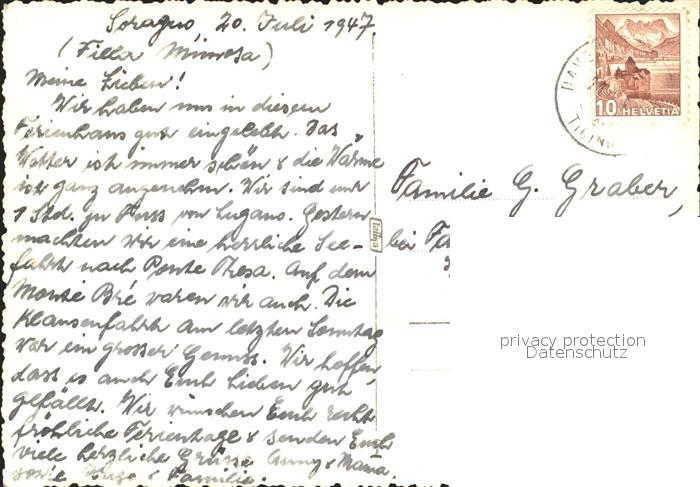 Soragno 20. Juli 1947.
(Filla Mimosa)
Meine Lieben!
Wir haben uns in diesem
Ferienhaus gut eingelebt. Das
Wetter ist immer schön & die Wärme
ist ganz angenehm. Wir sind nur
1 Std. zu Fuss von Lugano. Gestern
machten wir eine herrliche See-
fahrt nach Ponte Tresa. Auf dem
Monté Bré waren wir auch. Die
Klausenfahrt am letzten Sonntag
war ein grosser Genuss. Wir hoffen,
dass es auch Euch Lieben gut
gefällt. Wir wünschen Euch recht
fröhliche Ferientage & senden Euch
viele herzliche Grüsse & Mama
sowie Hugo & Familie.
Familie G. Graber,
bei
10 HELVETIA
privacy protection
Datenschutz